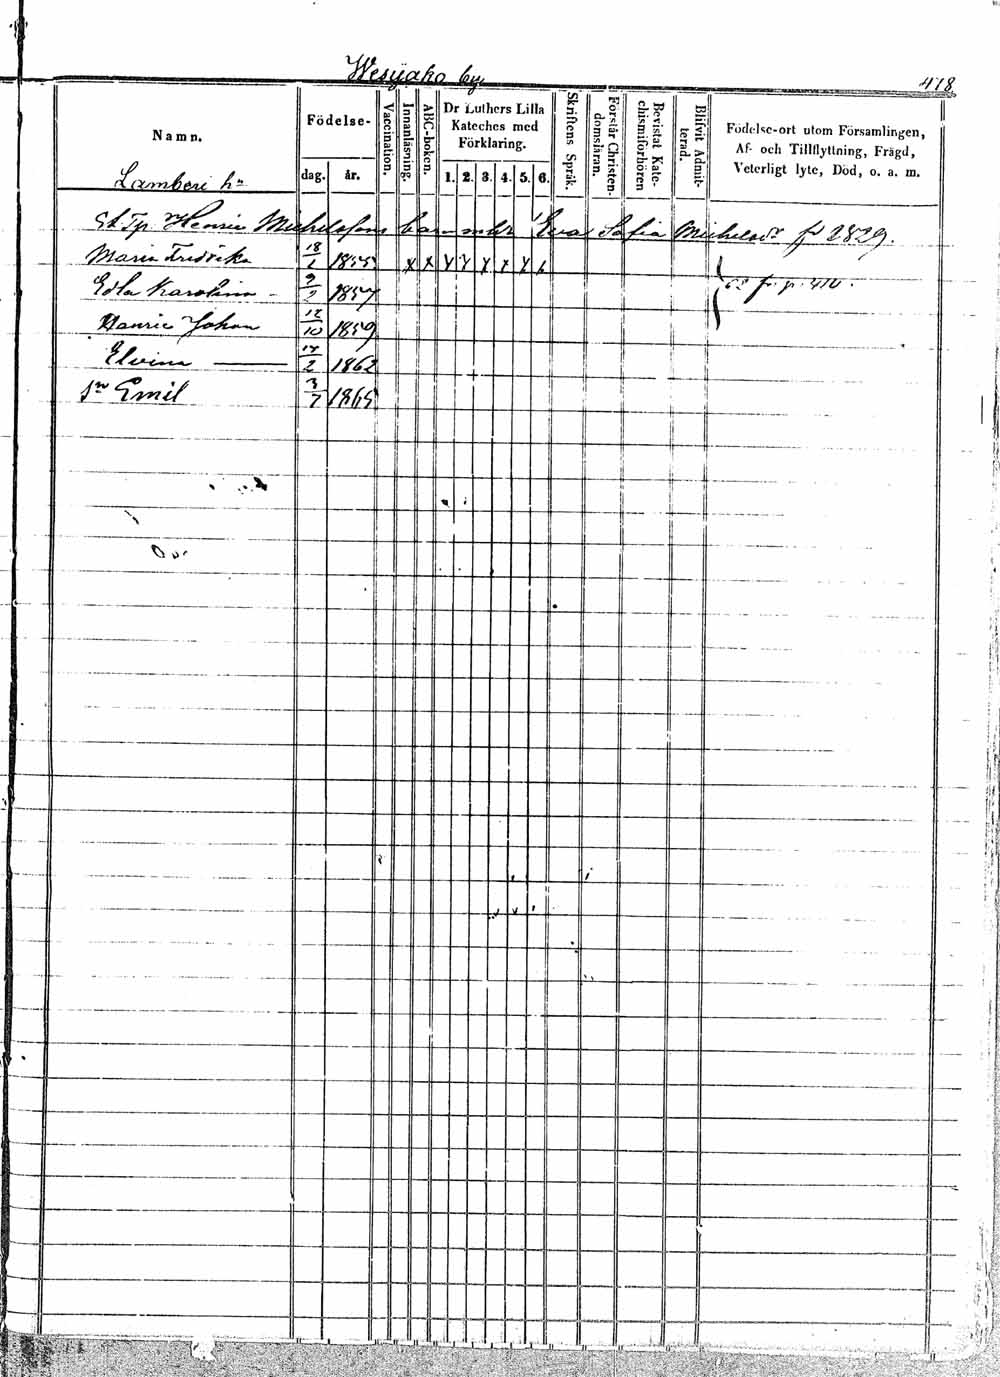 Wesijako by. 418
Namn. Födelse- dag. år. Vaccination. Innanläsning. ABC-boken. Dr Luthers Lilla Kateches med Förklaring. 1. 2. 3. 4. 5. 6. Skriftens Språk. Förstår Christendomsläran. Bevistat Katechismiförhören Blifvit Admitterad. Födelse-ort utom Församlingen, Af- och Tillflyttning, Frägd, Veterligt lyte, Död, o. a. m.
Lamberi hn
Henric Michelssons barn m Eva Sofia Michelsdr 2829.
Maria Fredrika 18/1 1855 x x x x x x x
Edla Karolina 9/2 1857 62 fr. p. 410.
Henric Johan 12/10 1859
Elvina 17/2 1862
sn Emil 3/7 1865